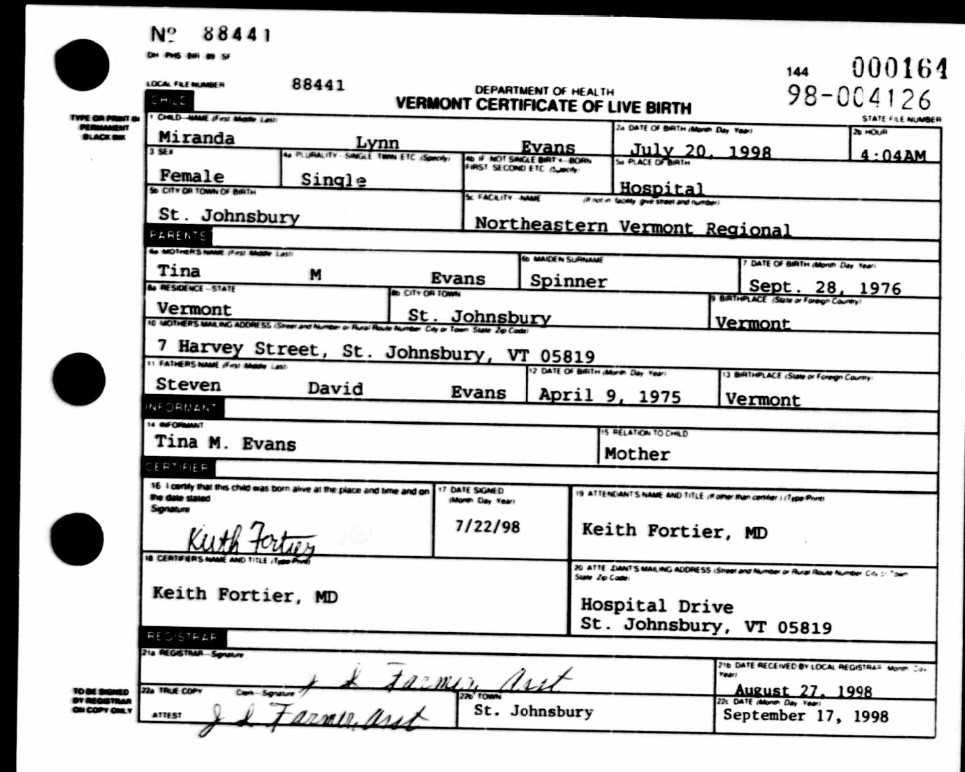 Nº 88441
DH-PHS-BIR 89 SF
LOCAL FILE NUMBER 88441
DEPARTMENT OF HEALTH
VERMONT CERTIFICATE OF LIVE BIRTH
144 000164
98-004126
STATE FILE NUMBER
TYPE OR PRINT IN PERMANENT BLACK INK
CHILD
1 CHILD—NAME (First Middle Last) 2a DATE OF BIRTH (Month Day Year) 2b HOUR
Miranda Lynn Evans July 20, 1998 4:04AM
3 SEX 4a PLURALITY—SINGLE TWIN ETC (Specify) 4b IF NOT SINGLE BIRTH—BORN FIRST SECOND ETC (Specify) 5a PLACE OF BIRTH
Female Single Hospital
5b CITY OR TOWN OF BIRTH 5c FACILITY—NAME (If not in facility give street and number)
St. Johnsbury Northeastern Vermont Regional
PARENTS
6a MOTHER'S NAME (First Middle Last) 6b MAIDEN SURNAME 7 DATE OF BIRTH (Month Day Year)
Tina M Evans Spinner Sept. 28, 1976
8a RESIDENCE—STATE 8b CITY OR TOWN 9 BIRTHPLACE (State or Foreign Country)
Vermont St. Johnsbury Vermont
10 MOTHER'S MAILING ADDRESS (Street and Number or Rural Route Number City or Town State Zip Code)
7 Harvey Street, St. Johnsbury, VT 05819
11 FATHER'S NAME (First Middle Last) 12 DATE OF BIRTH (Month Day Year) 13 BIRTHPLACE (State or Foreign Country)
Steven David Evans April 9, 1975 Vermont
INFORMANT
14 INFORMANT 15 RELATION TO CHILD
Tina M. Evans Mother
CERTIFIER
16 I certify that this child was born alive at the place and time and on the date stated
Signature
Keith Fortier
17 DATE SIGNED (Month Day Year)
7/22/98
19 ATTENDANT'S NAME AND TITLE (If other than certifier) (Type/Print)
Keith Fortier, MD
18 CERTIFIER'S NAME AND TITLE (Type/Print)
Keith Fortier, MD
20 ATTENDANT'S MAILING ADDRESS (Street and Number or Rural Route Number City or Town State Zip Code)
Hospital Drive
St. Johnsbury, VT 05819
REGISTRAR
21a REGISTRAR—Signature 21b DATE RECEIVED BY LOCAL REGISTRAR Month Day Year)
J L Farmer, Asst August 27, 1998
TO BE SIGNED BY REGISTRAR ON COPY ONLY
22a TRUE COPY Clerk—Signature 22b TOWN 22c DATE (Month Day Year)
ATTEST J L Farmer, Asst St. Johnsbury September 17, 1998